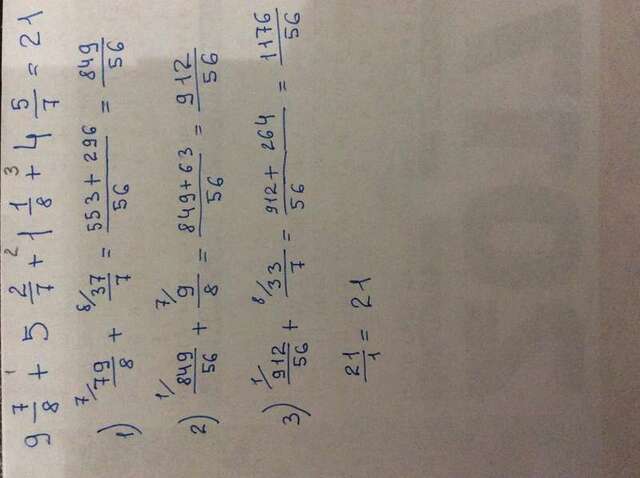 9 7/8 +¹ 5 2/7 +² 1 1/8 +³ 4 5/7 = 21
1) ⁷/79/8 + ⁸/37/7 = 553+296/56 = 849/56
2) ¹/849/56 + ⁷/9/8 = 849+63/56 = 912/56
3) ¹/912/56 + ⁸/33/7 = 912+264/56 = 1176/56
21/1 = 21